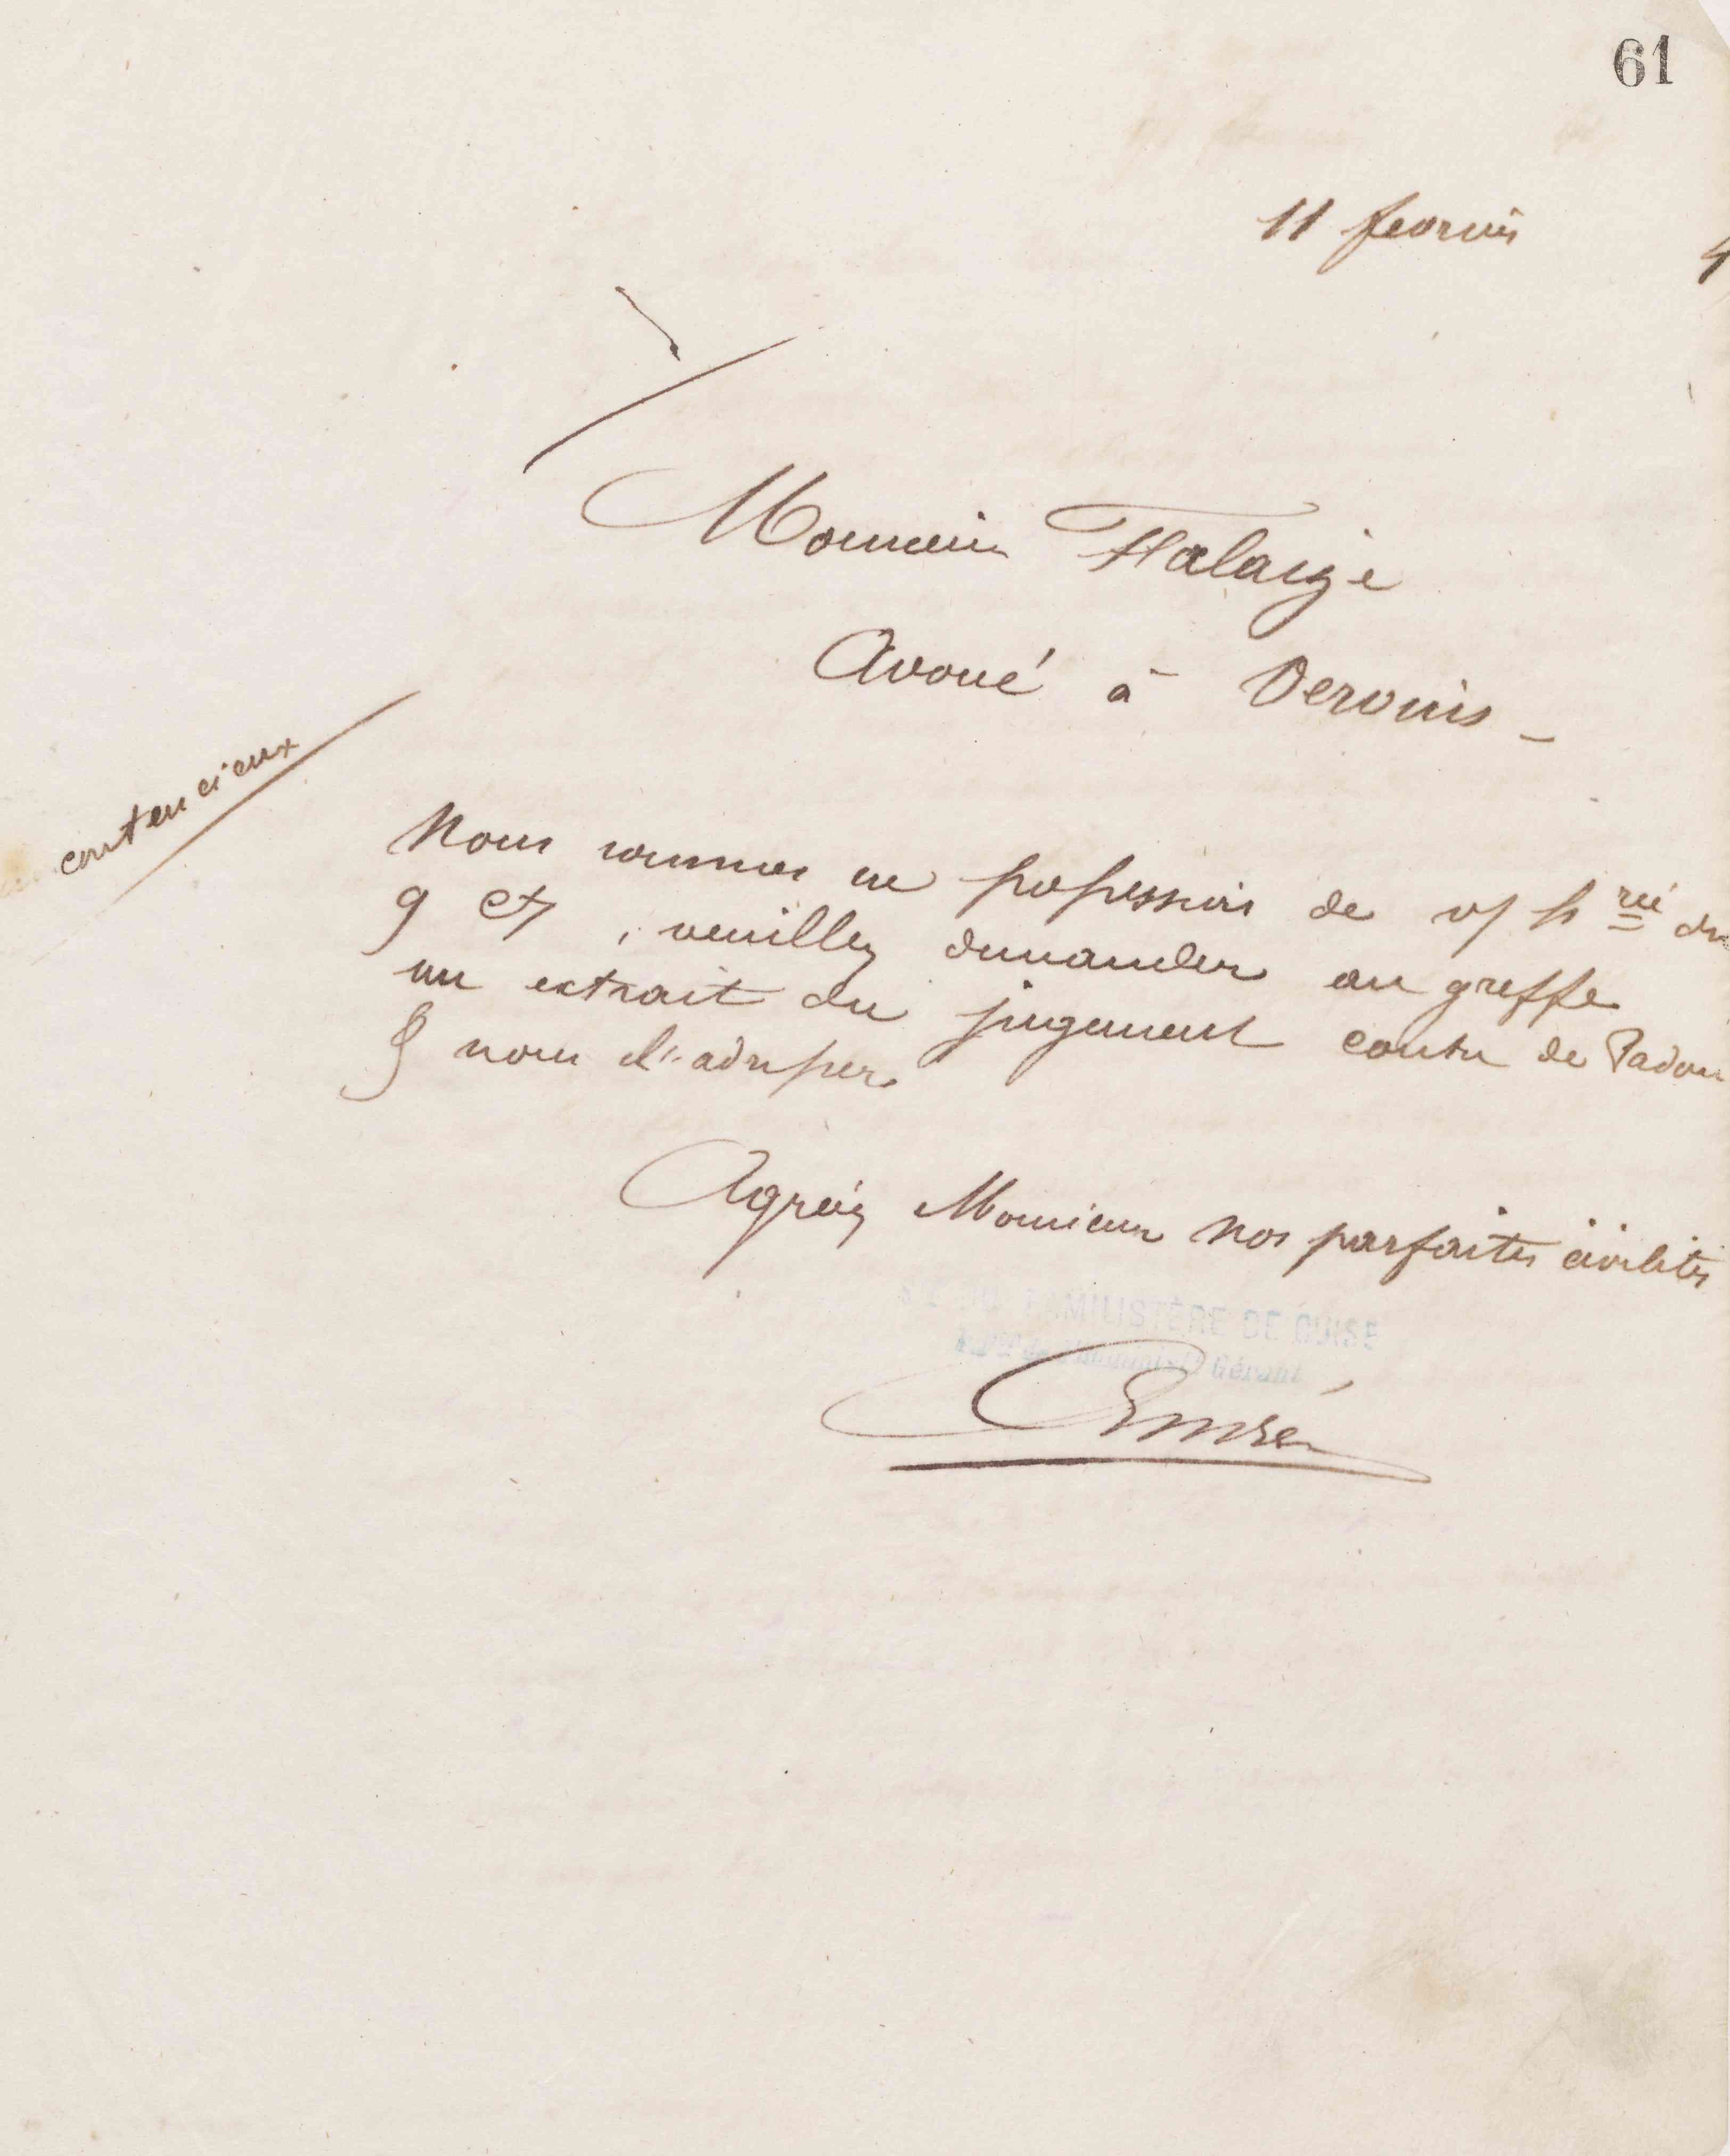 61
11 fevrier 4
Monsieur Falaize
Avoué à Vervins -
contencieux
Nous sommes en possession de v/ h rée du
9 ct, veuillez demander au greffe
un extrait du jugement contre de Padou
& nous l'adresser.
Agréez Monsieur nos parfaites civilités
DU FAMILISTÈRE DE GUISE
Gérant